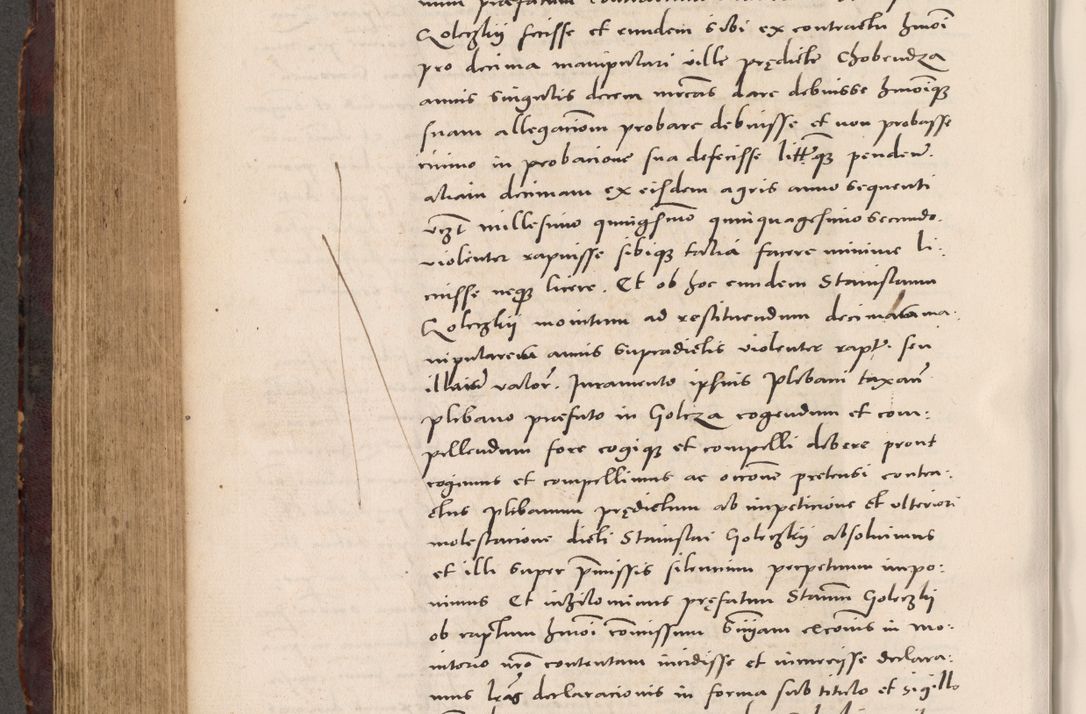 Golczkij fecisse et eundem sibi ex contractu hmoi
pro decima manipulari ville prędicte Chobendza
annis singulis decem mrcas dare debuisse hmoiqꝫ
suam allegacõem probare debuisse et non probasse
immo in probacione sua defecisse litteqꝫ penden.
aliam decimam ex eisdem agris anno sequenti
vczt millesimo quingẽsimo quinquagesimo secundo.
violenter rapuisse sibiqꝫ talia facere minime li:
cuisse neqꝫ licere. Et ob hoc eundem Stanislaum
Golczkij monitum ad restituendum decimam ma:
nipularem annis supradictis violenter rapt. seu
illius valorẽ. Juramento ipsius plebani taxan
plebano præfato in Golcza cogendum et com:
pellendum fore cogiqꝫ et compelli debere prout
cogimus et compellimus ac occõne pretensi contra:
ctus plebanum prędictum ab impeticione et ulteriori
molestacione dicti Stanislai Golczkij absoluimus
et illi super p̃missis silencium perpetuum impo:
nimus Et nihilominus pręfatum Stanm̃ Golczkij
ob raptum hmoi com̃issum sñiam excõis in mo:
nitorio nro contentam incidisse et incurrisse declara:
mus lrãs declaracionis in forma sub titulo et sigillo